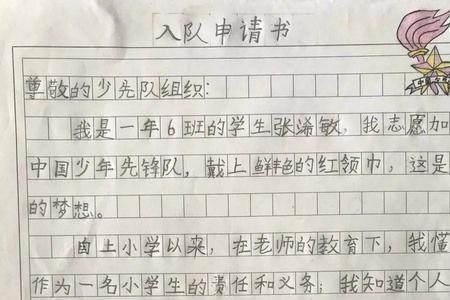 入队申请书
尊敬的少先队组织:
我是一年6班的学生张浠敏,我志愿加
中国少年先锋队,戴上鲜艳的红领巾,这是
的梦想。
自上小学以来,在老师的教育下,我懂
作为一名小学生的责任和义务;我知道个人